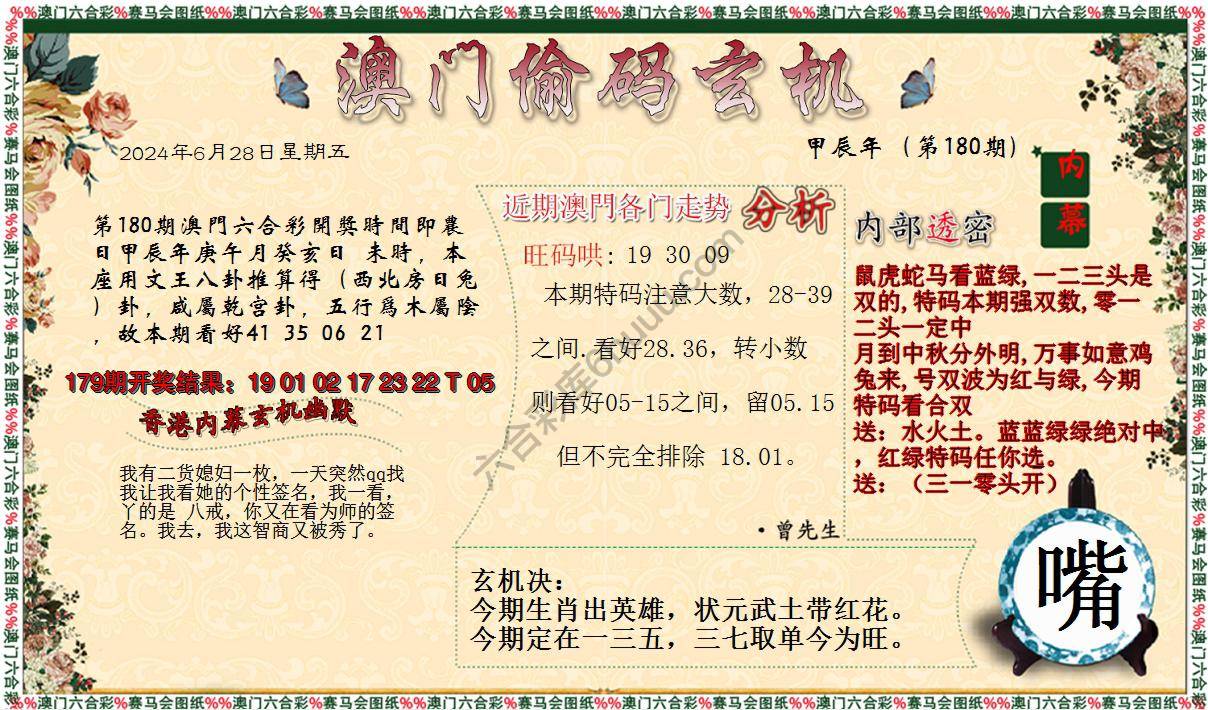 %%澳门六合彩%赛马会图纸%%澳门六合彩%赛马会图纸%%澳门六合彩%赛马会图纸%%澳门六合彩%赛马会图纸%%澳门六合彩%赛马会图纸%%澳门六合彩%赛马会图纸%%
澳门偷码玄机
2024年6月28日星期五
甲辰年（第180期）
内幕
第180期澳門六合彩開獎時間即農
日甲辰年庚午月癸亥日 未時，本
座用文王八卦推算得（西北房日兔
）卦，咸屬乾宫卦，五行爲木屬陰
，故本期看好41 35 06 21
179期开奖结果：19 01 02 17 23 22 T 05
香港内幕玄机幽默
我有二货媳妇一枚，一天突然qq找
我让我看她的个性签名，我一看，
丫的是 八戒，你又在看为师的签
名。我去，我这智商又被秀了。
近期澳門各门走势 分析
旺码哄: 19 30 09
本期特码注意大数，28-39
之间.看好28.36，转小数
则看好05-15之间，留05.15
但不完全排除 18.01。
·曾先生
内部透密
鼠虎蛇马看蓝绿,一二三头是
双的,特码本期强双数,零一
二头一定中
月到中秋分外明,万事如意鸡
兔来,号双波为红与绿,今期
特码看合双
送：水火土。蓝蓝绿绿绝对中
，红绿特码任你选。
送：（三一零头开）
玄机决：
今期生肖出英雄，状元武土带红花。
今期定在一三五，三七取单今为旺。
嘴
%%澳门六合彩%赛马会图纸%%澳门六合彩%赛马会图纸%%澳门六合彩%赛马会图纸%%澳门六合彩%赛马会图纸%%澳门六合彩%赛马会图纸%%澳门六合彩%赛马会图纸%%